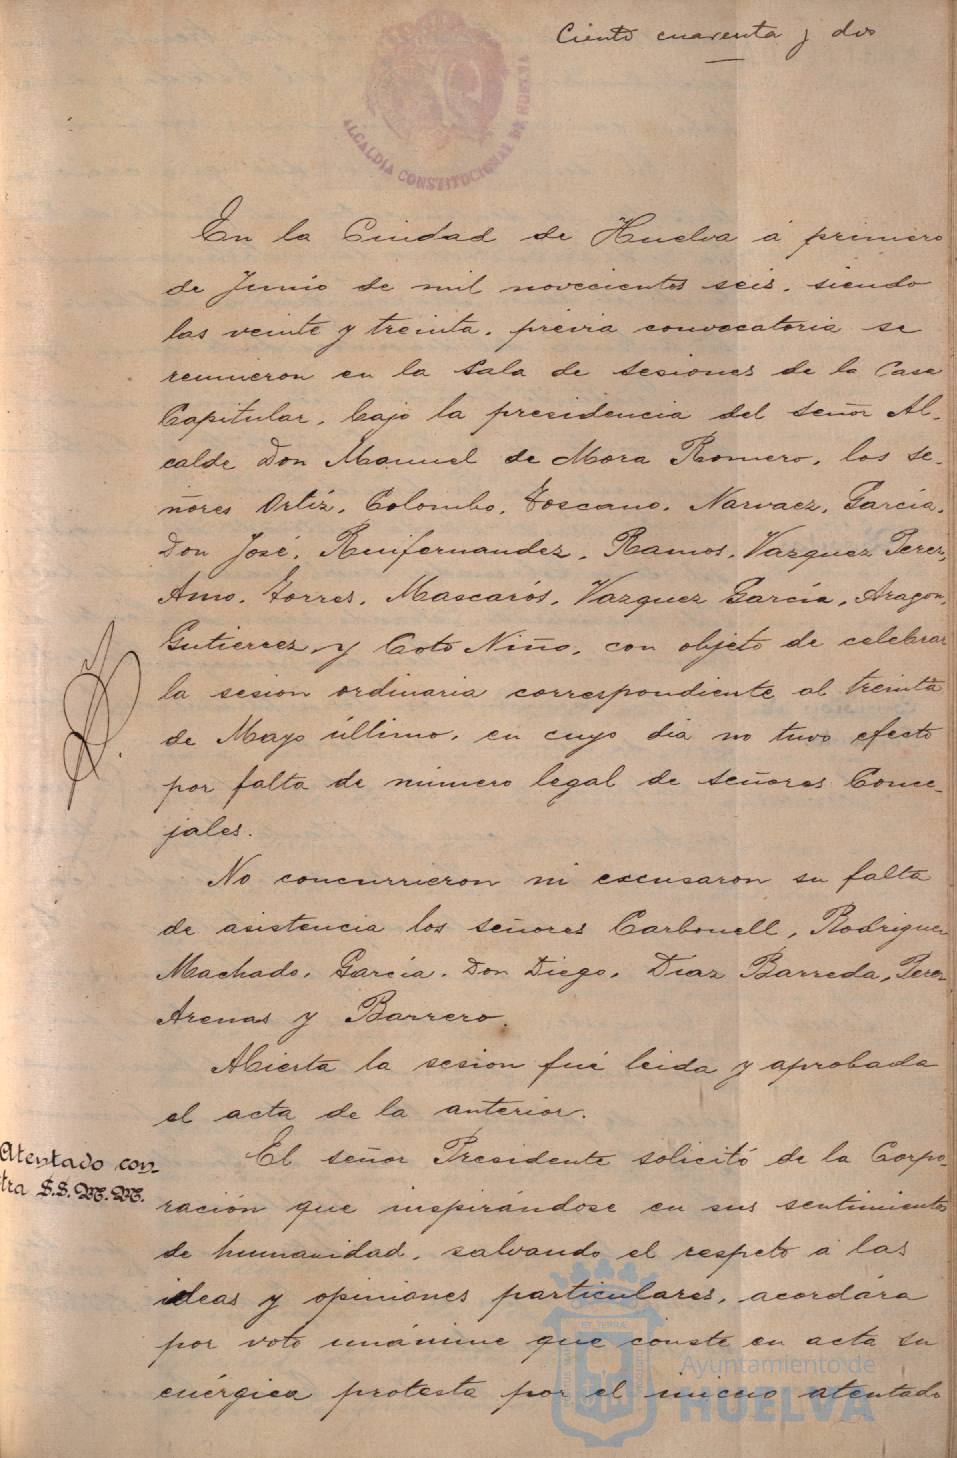 Ciento cuarenta y dos
ALCALDIA CONSTITUCIONAL DE HUELVA
En la Ciudad de Huelva á primero
de Junio de mil novecientos seis, siendo
las veinte y treinta, previa convocatoria se
reunieron en la Sala de sesiones de la Casa
Capitular, bajo la presidencia del señor Al-
calde Don Manuel de Mora Romero, los se-
ñores Ortiz, Colombo, Toscano, Narvaez, García,
Don José, Ruifernandez, Ramos, Vazquez Perez,
Amo, Torres, Mascarós, Vazquez García, Aragon,
Gutierrez, y Coto Niño, con objeto de celebrar
la sesion ordinaria correspondiente al treinta
de Mayo último, en cuyo dia no tuvo efecto
por falta de número legal de señores Conce-
jales.
No concurrieron ni escusaron su falta
de asistencia los señores Carbonell, Rodriguez
Machado, García, Don Diego, Diaz Barreda, Perez
Arenas y Barrero.
Abierta la sesion fué leida y aprobada
el acta de la anterior.
Atentado con-
tra S.S. M.M.
El señor Presidente solicitó de la Corpo-
ración que inspirándose en sus sentimientos
de humanidad, salvando el respeto á las
ideas y opiniones particulares, acordára
por voto unánime que conste en acta su
enérgica protesta por el inicuo atentado
Ayuntamiento de
HUELVA